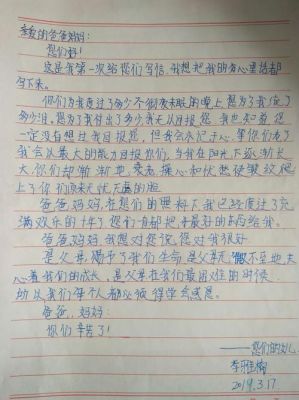 亲爱的爸爸妈妈:
您们好!
这是我第一次给您们写信,我想把我的内心里话都
写下来。
你们为我度过了多少个彻夜未眠的晚上,您为了我流了
多少泪,您为了我付出了多少我无以回报,您
一定没有想过我回报您,但我会永记于心,等你们老了
我会以最大的能力回报你们。当我在阳光下逐渐长
大你们却渐渐地衰老操心和忧愁使皱纹爬
上了你们原来无忧无虑的脸
爸爸,妈妈,在您们的照料下我已经度过了充
满欢乐的十年了您们一直都把最好的东西给我。
爸爸,妈妈,我想对您说,您对我很好
是父母赐予了我们生命,是父母无微不至地关
心着我们的成长,是父母在我们最困难的时候
所以我们每个人都必须得学会感恩。
爸爸,妈妈:
你们辛苦了!
——您们的女儿
李雅楠
2019.3.17